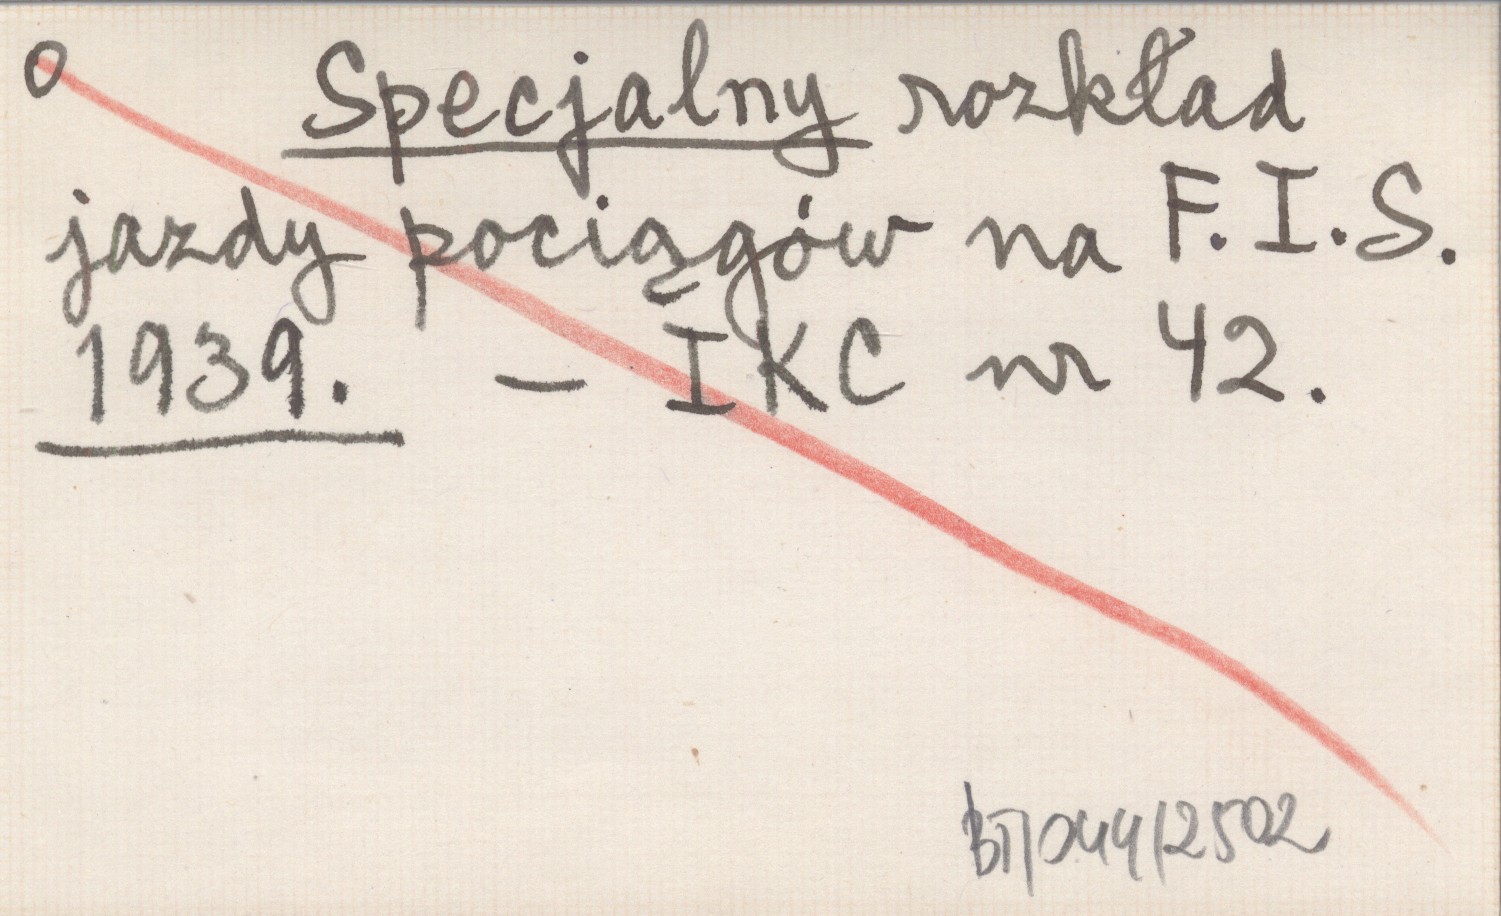 O Specjalny rozkład
jazdy pociągów na F.I.S.
1939. – IKC nr 42.
BT/044/2502